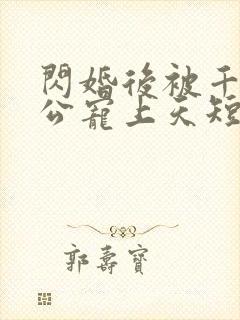 閃婚後被千
公寵上天短
郭壽寶